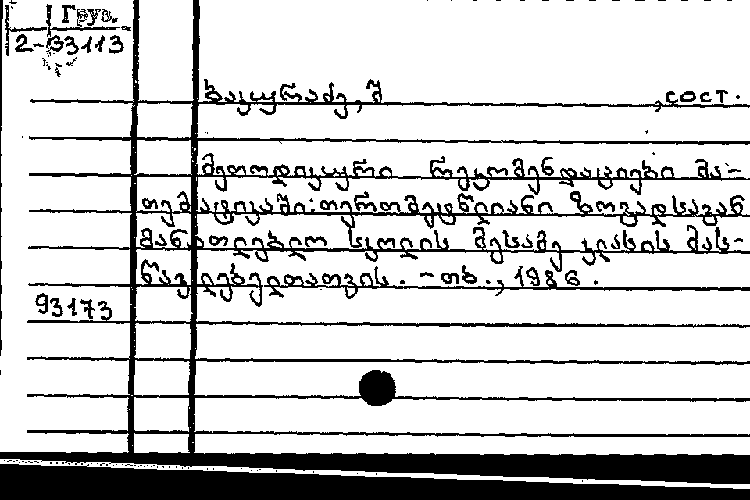 Груз.
2-33113
ბაკურაძე, შ , сост.
მეთოდიკური რეკომენდაციები მა-
თემატიკაში: თერთმეტწლიანი ზოგადსაგან
მანათლებლო სკოლის მესამე კლასის მას-
წავლებელთათვის. - თბ., 1986.
93173